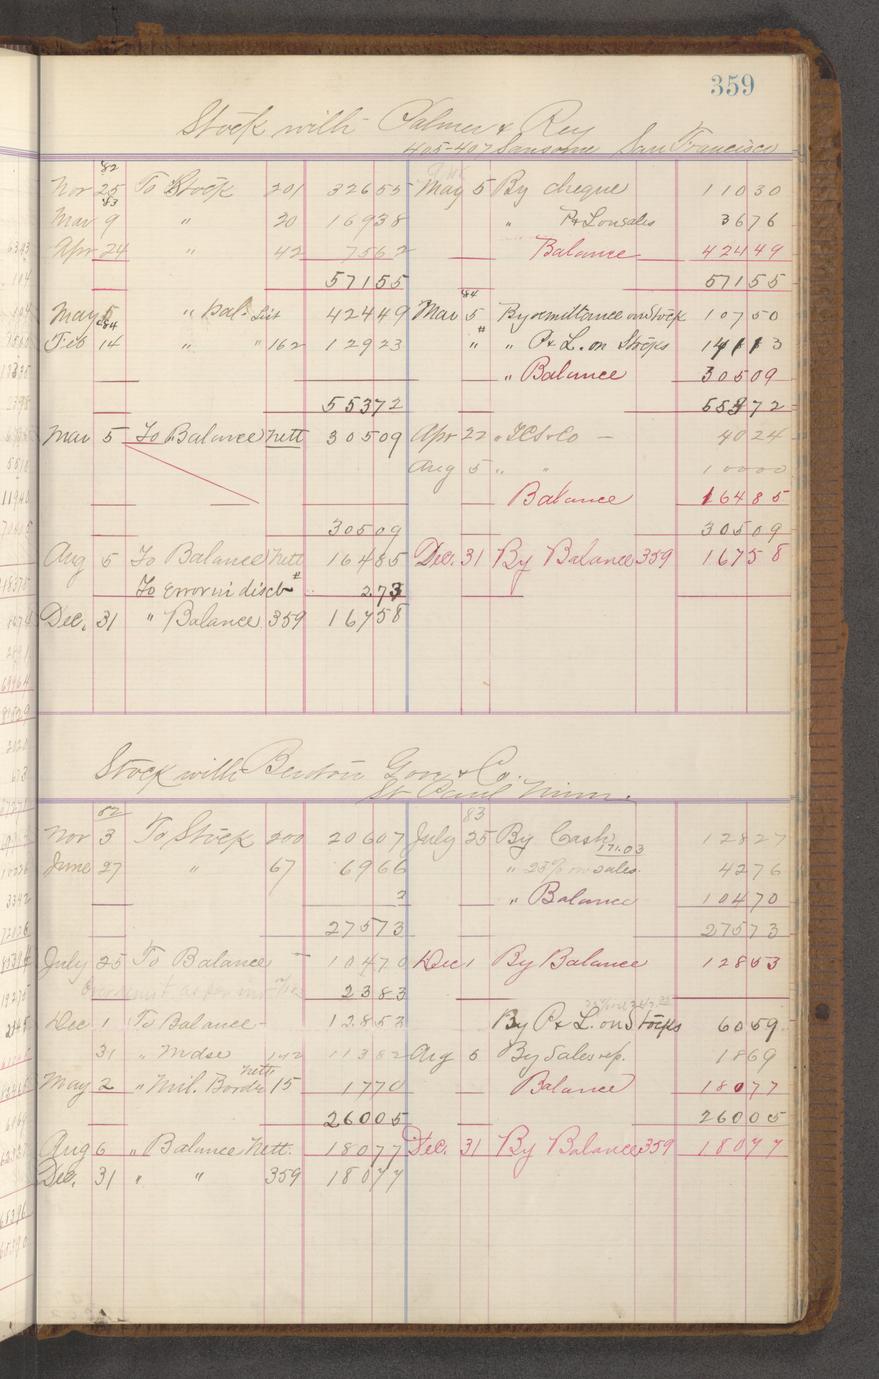 359
Stock with Palmer & Rey
405-407 Sansome San Francisco
'82
Nov 25 To Stock 201 32655 May 5 By cheque 11030
'83
Mar 9 " 20 16938 " P & L on sales 3676
Apr 24 " 42 7562 Balance 42449
57155 57155
'84
May 5 " Bal. List 42449 Mar 5 By remittance on Stock 10750
'84
Feb 14 " " 162 12923 " " P & L. on Stocks 14113
" Balance 30509
55372 55372
Mar 5 To Balance nett 30509 Apr 22 " — 4024
Aug 5 " " 10000
Balance 16485
30509 30509
Aug 5 To Balance nett 16485 Dec. 31 By Balance 359 16758
To Error in disct 273
Dec. 31 " Balance 359 16758
Stock with Benton Gove & Co.
St Paul Minn.
82 83
Nov 3 To Stock 200 20607 July 25 By Cash 12827
171.03
June 27 " 67 6966 " 25% on sales 4276
2 " Balance 10470
27573 27573
July 25 To Balance 10470 Dec 1 By Balance 12853
2383
Dec 1 To Balance 12853 By P & L. on Stocks 6059
31 " Mdse 142 11382 Aug 5 By Sales rep. 1869
nett
May 2 " Mil. Border 15 1770 Balance 18077
26005 26005
Aug 6 " Balance nett. 18077 Dec. 31 By Balance 359 18077
Dec. 31 " " 359 18077